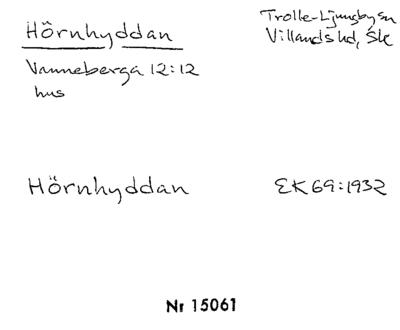 Hörnhyddan
Trolle-Ljungby sn
Villands hd, Sk
Vanneberga 12:12
hus
Hörnhyddan
EK 69:1932
Nr 15061